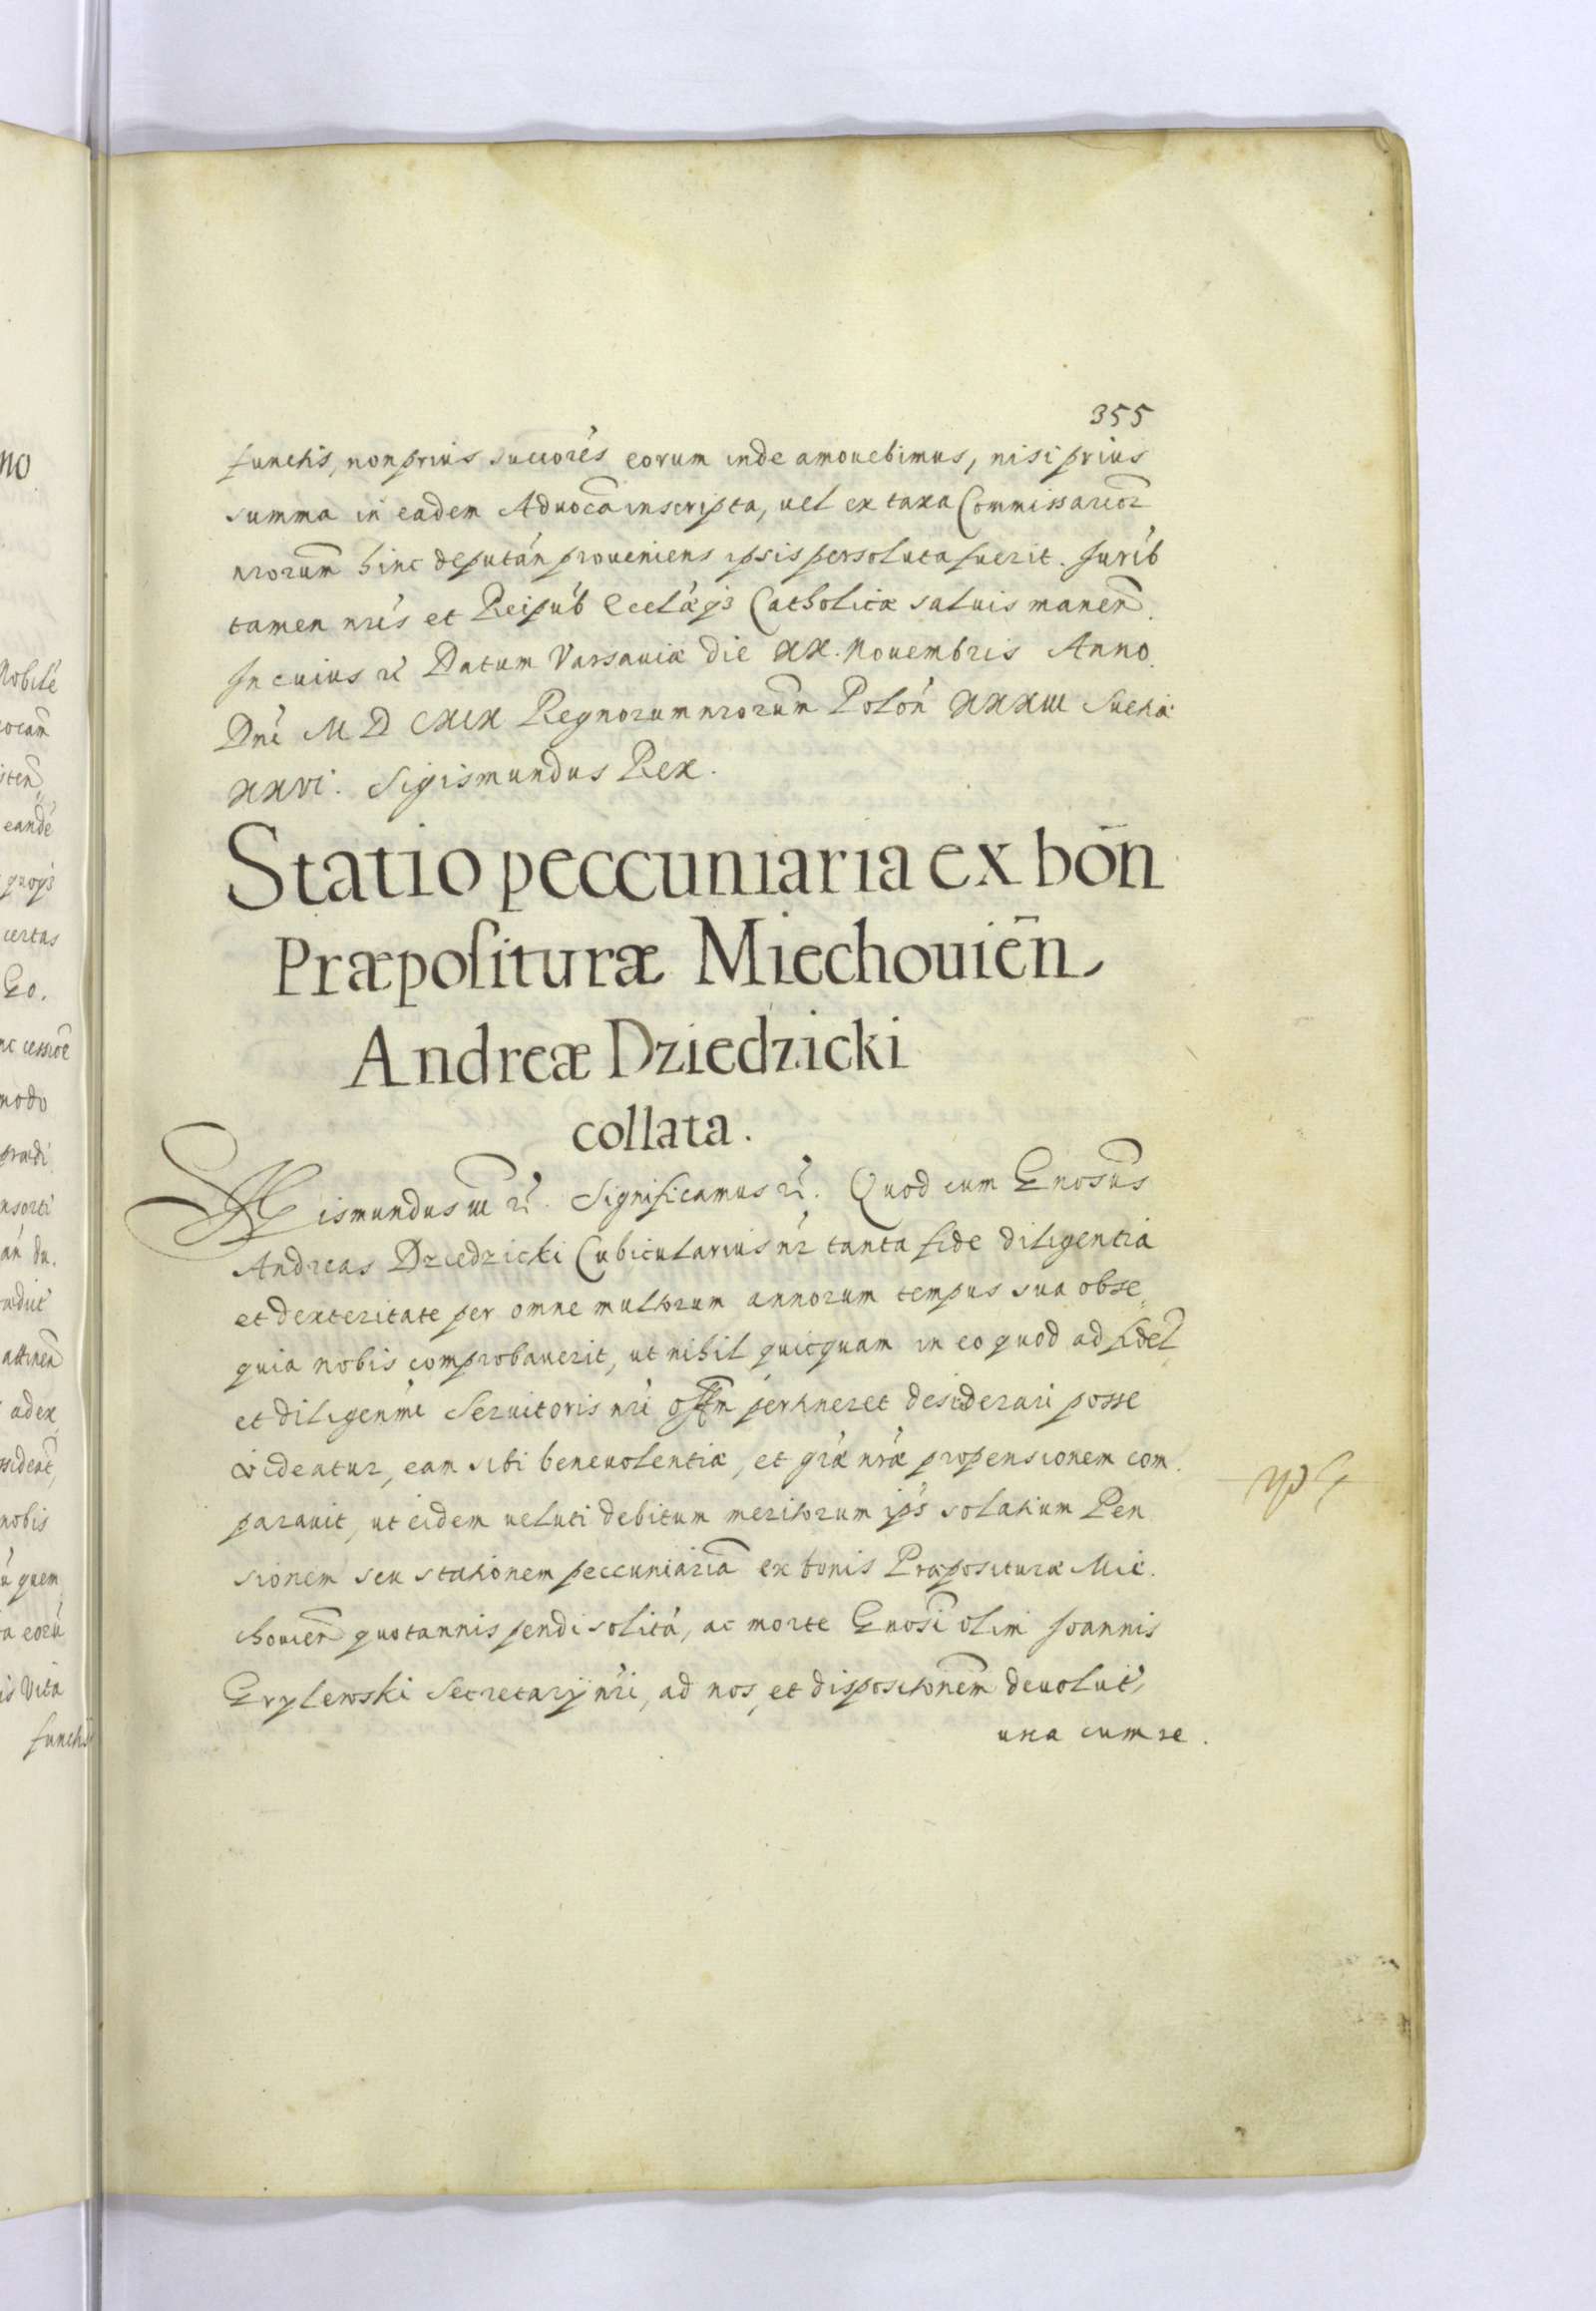 355
functis, non prius succores eorum inde amouebimus, nisi prius
summa in eadem Aduoca inscripta, uel ex taxa Commissarior
nrorum hinc deputan proueniens ipsis persoluta fuerit. Jurib
tamen nris et Reipub Eccl̃æq3 Catholicæ saluis manen.
In cuius rei Datum Varsauiæ die XX. Nouembris Anno
Dni M D CXIX Regnorum nrorum Polon XXXIII Sueciæ
XXVI. Sigismundus Rex.
Statio peccuniaria ex bon̄
Præpositurae Miechouien̄
Andreæ Dziedzicki
collata.
Sigismundus III ri. Significamus ri. Quod cum Gnosus
Andreas Dziedzicki Cubicularius nr tanta fide diligentia
et dexteritate per omne multorum annorum tempus sua obse„
quia nobis comprobauerit, ut nihil quicquam in eo quod ad fidel
et diligenmi Seruitoris nri offm pertineret desiderari posse
uideatur, eam sibi beneuolentiæ, et græ nræ propensionem com
parauit, ut eidem ueluti debitum meritorum ips solatium Pen
sionem seu stationem peccuniariã ex bonis Præposituræ Mie.
chouien quotannis pendi solitã, ac morte Gnosi olim Joannis
Grylewski Secretarij nri, ad nos, et dispositionem deuolut,
una cum re.